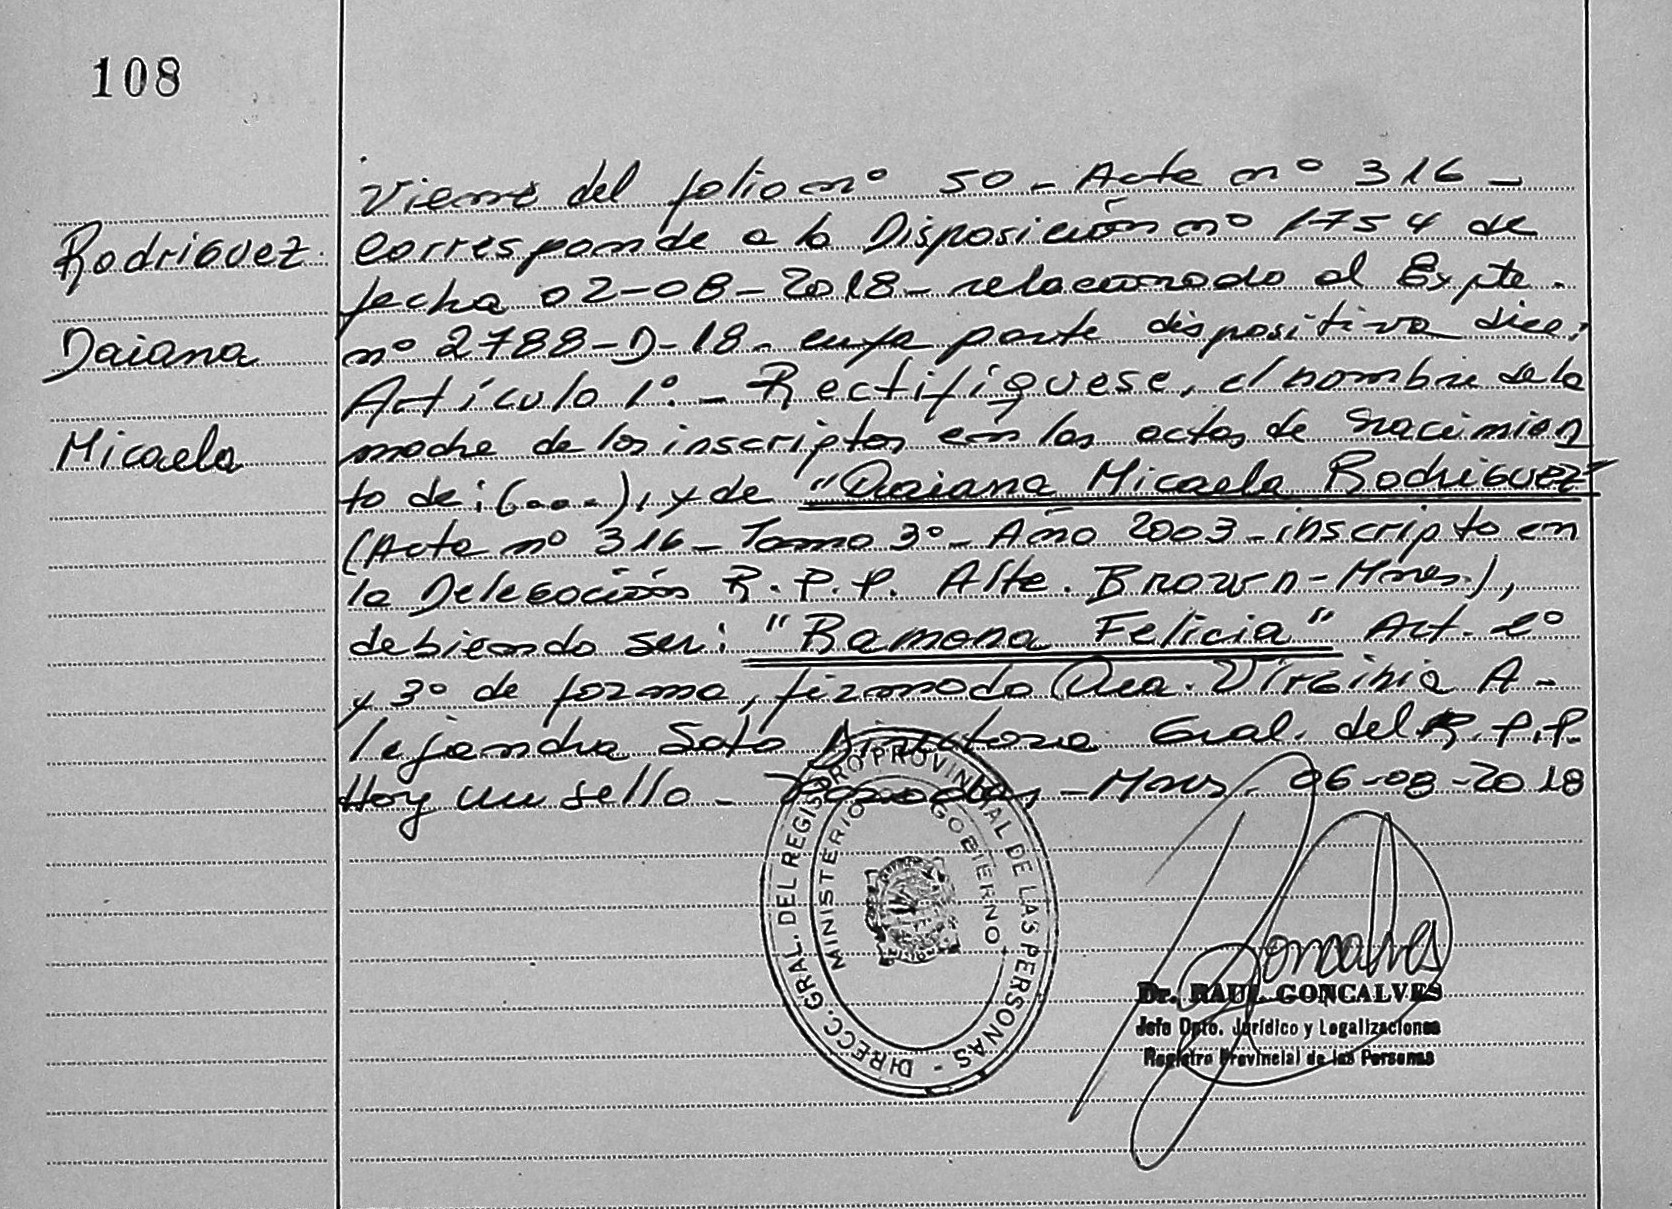 108
Rodriguez
Daiana
Micaela
Viene del folio nº 50 - Acta nº 316 -
Corresponde a la Disposición nº 1754 de
fecha 02-08-2018 - relacionado al Expte.
nº 2788-D-18 - cuya parte dispositiva dice:
Artículo 1º. - Rectifíquese, el nombre de la
madre de los inscriptos en las actas de nacimien
to de: (....), y de "Daiana Micaela Rodriguez"
(Acta nº 316 - Tomo 3º - Año 2003 - inscripto en
la Delegación R.P.P. Alte. Brown - Mnes.),
debiendo ser: "Ramona Felicia" Art. 2º
y 3º de forma, firmado Dra. Virginia A-
lejandra Soto Directora Gral. del R.P.P.
Hay un sello - Posadas - Mnes. 06-08-2018
DIRECC. GRAL. DEL REGISTRO PROVINCIAL DE LAS PERSONAS -
MINISTERIO DE GOBIERNO
Goncalves
Dr. RAUL GONCALVES
Jefe Dpto. Jurídico y Legalizaciones
Registro Provincial de las Personas